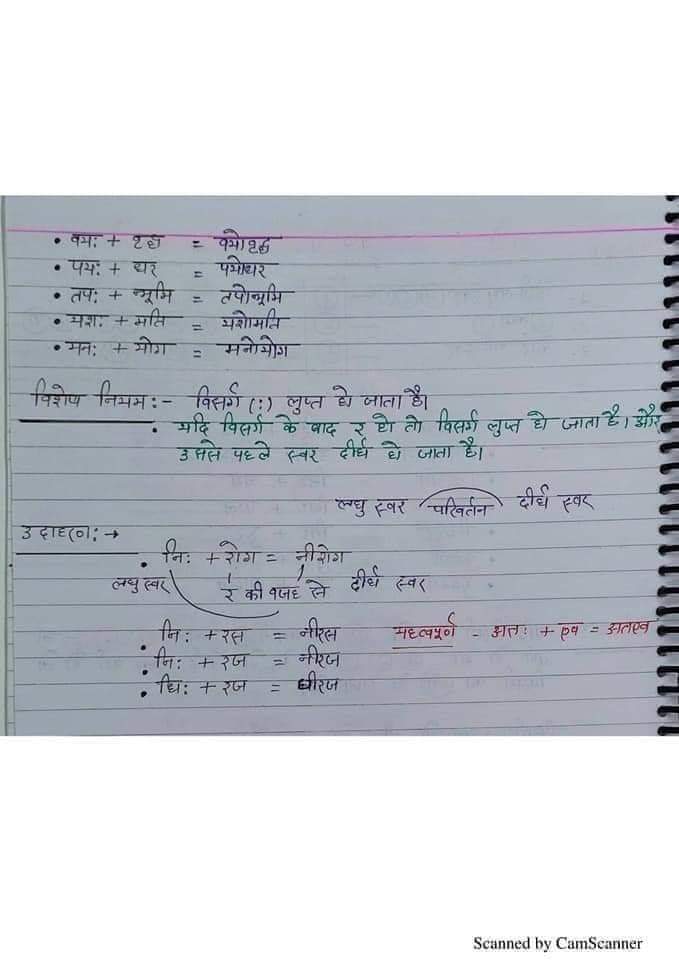 • वयः + वृद्ध = वयोवृद्ध
• पयः + धर = पयोधर
• तपः + भूमि = तपोभूमि
• यशः + मति = यशोमति
• मनः + योग = मनोयोग
विशेष नियम :- विसर्ग (:) लुप्त हो जाता है।
• यदि विसर्ग के बाद र हो तो विसर्ग लुप्त हो जाता है। और
उससे पहले स्वर दीर्घ हो जाता है।
लघु स्वर परिवर्तन दीर्घ स्वर
उदाहरण: →
• निः + रोग = नीरोग
लघु स्वर र की वजह से दीर्घ स्वर
• निः + रस = नीरस महत्वपूर्ण - अतः + एव = अतएव
• निः + रज = नीरज
• धिः + रज = धीरज
Scanned by CamScanner